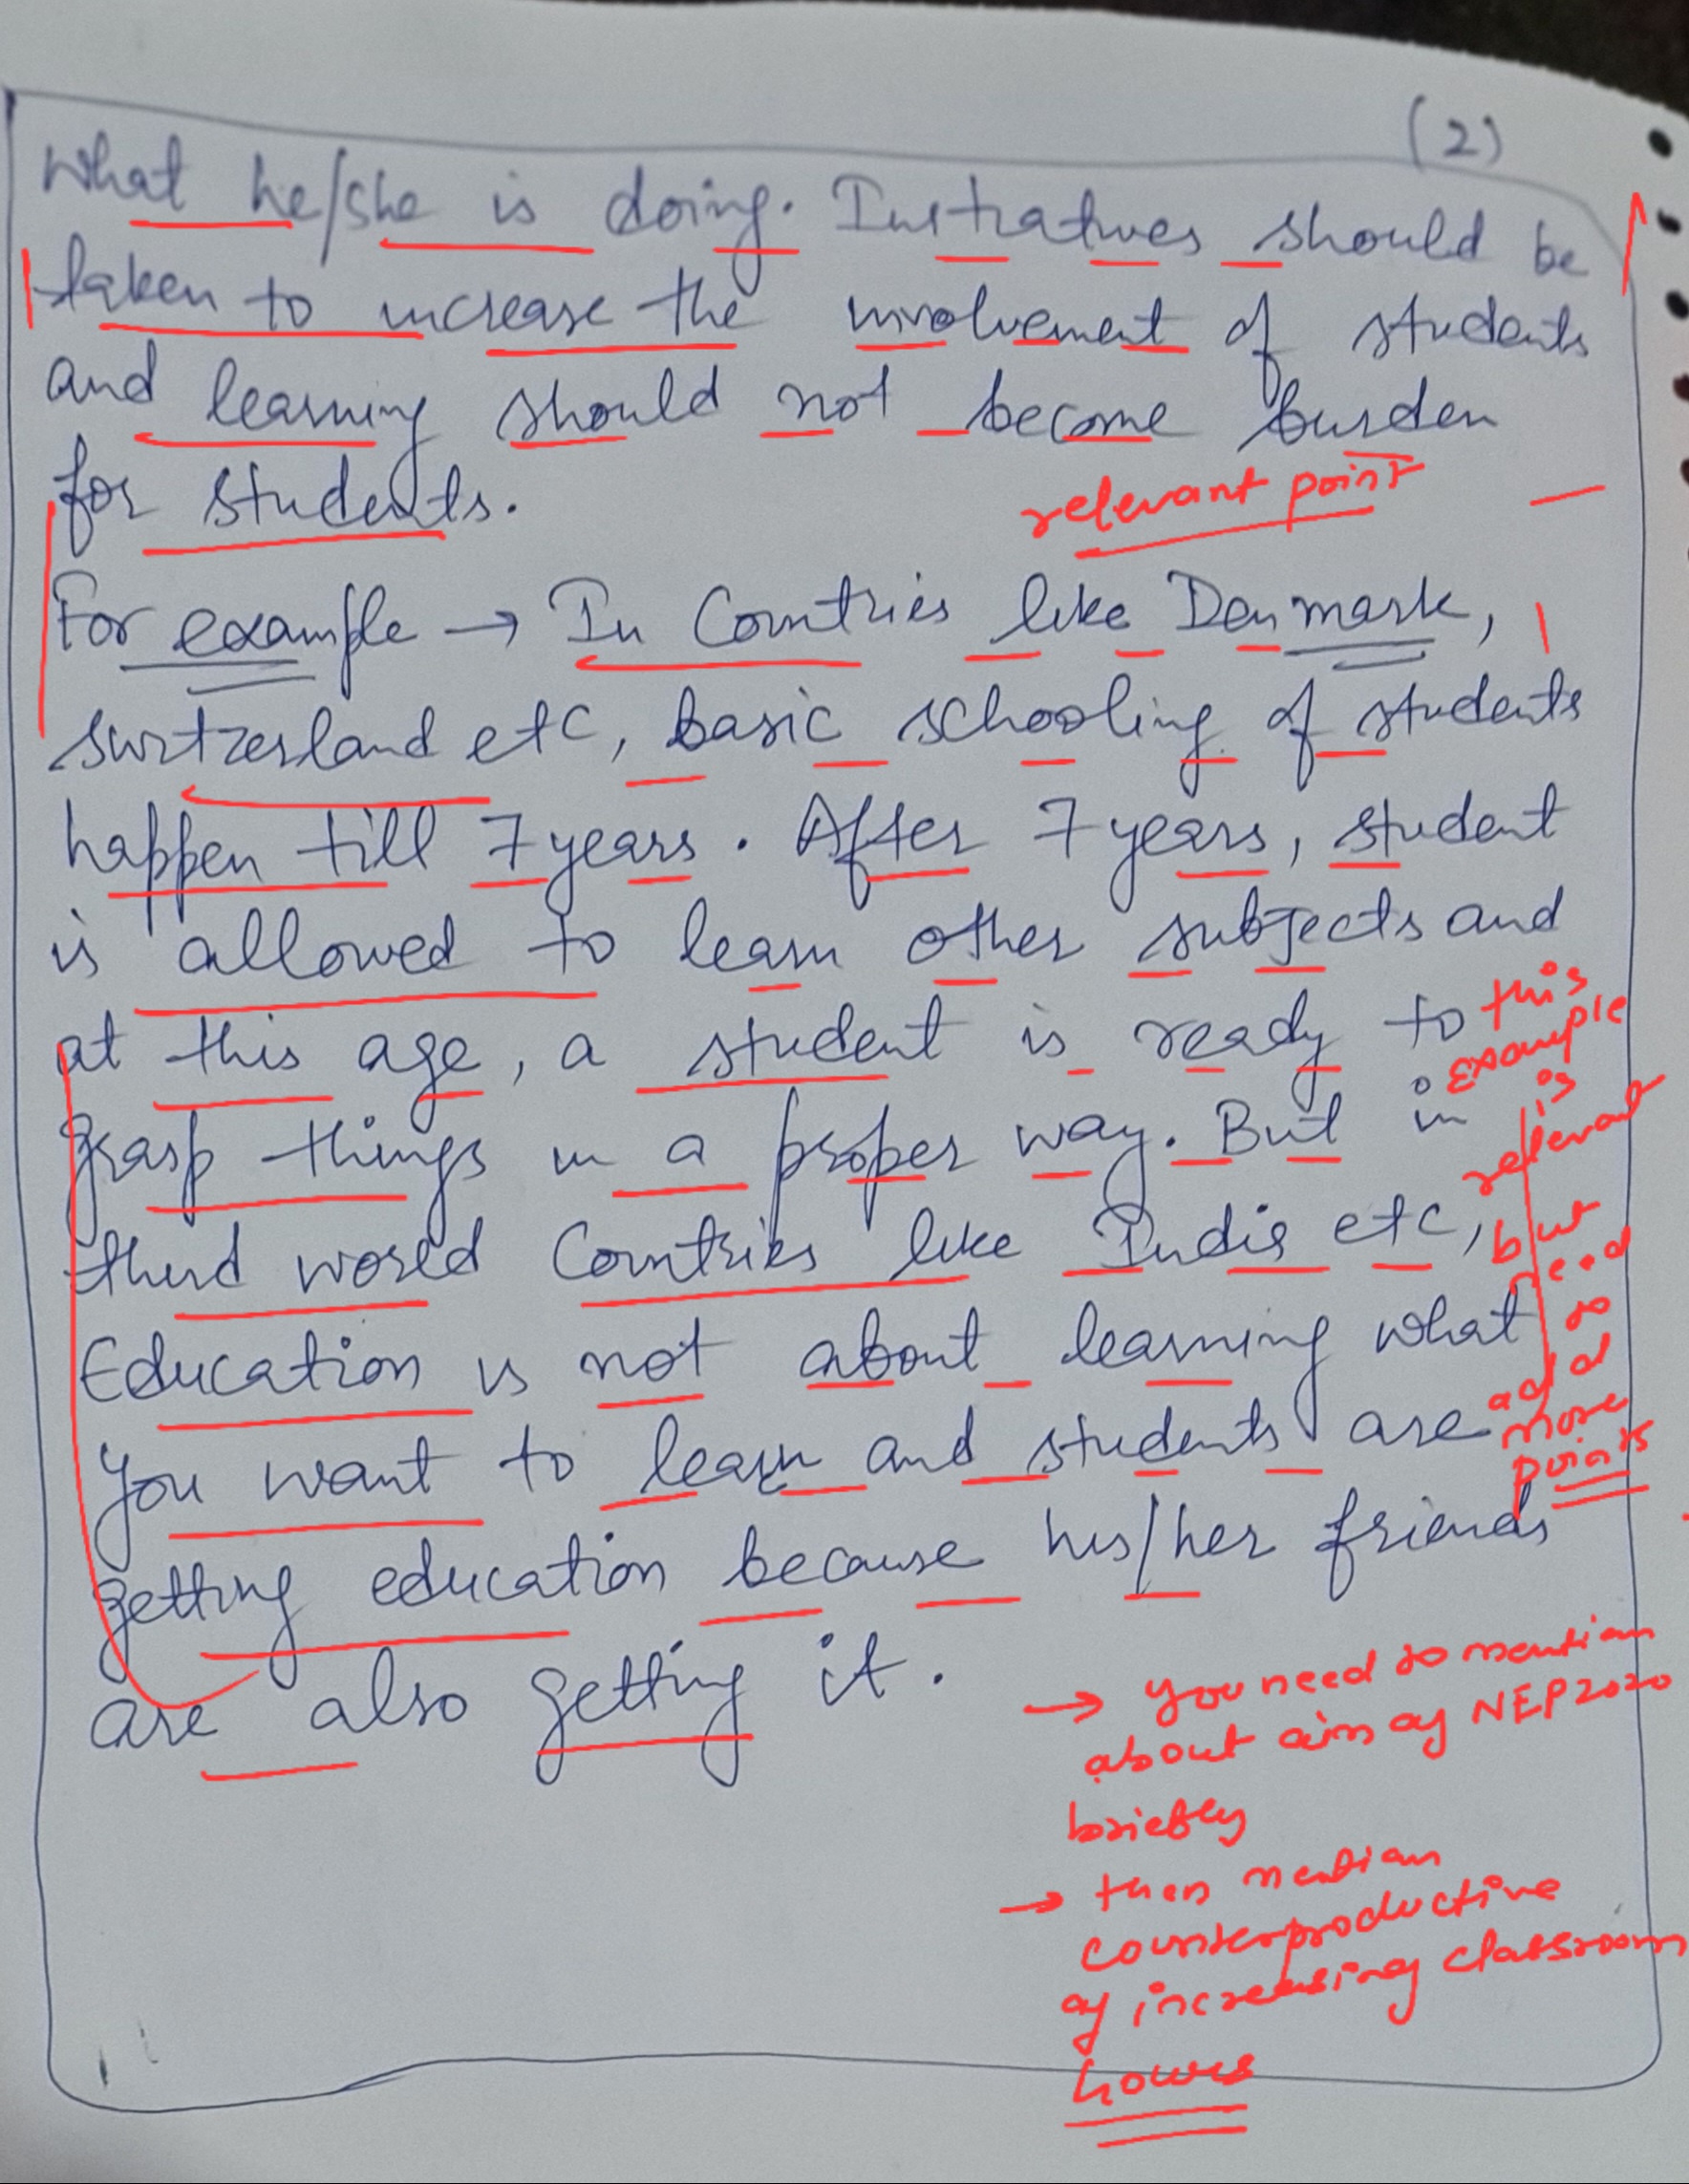 (2)
What he/she is doing. Initiatives should be
taken to increase the involvement of students
and learning should not become burden
for students.
relevant point
For example → In Countries like Denmark,
Switzerland etc, basic schooling of students
happen till 7 years. After 7 years, student
is allowed to learn other subjects and
at this age, a student is ready to
grasp things in a proper way. But in
third world Countries like India etc,
Education is not about learning what
you want to learn and students are
getting education because his/her friends
are also getting it.
this
example
is
relevant
but
need
to
add
more
points
→ you need to mention
about aim of NEP 2020
briefly
→ then mention
counterproductive
of increasing classroom
hours